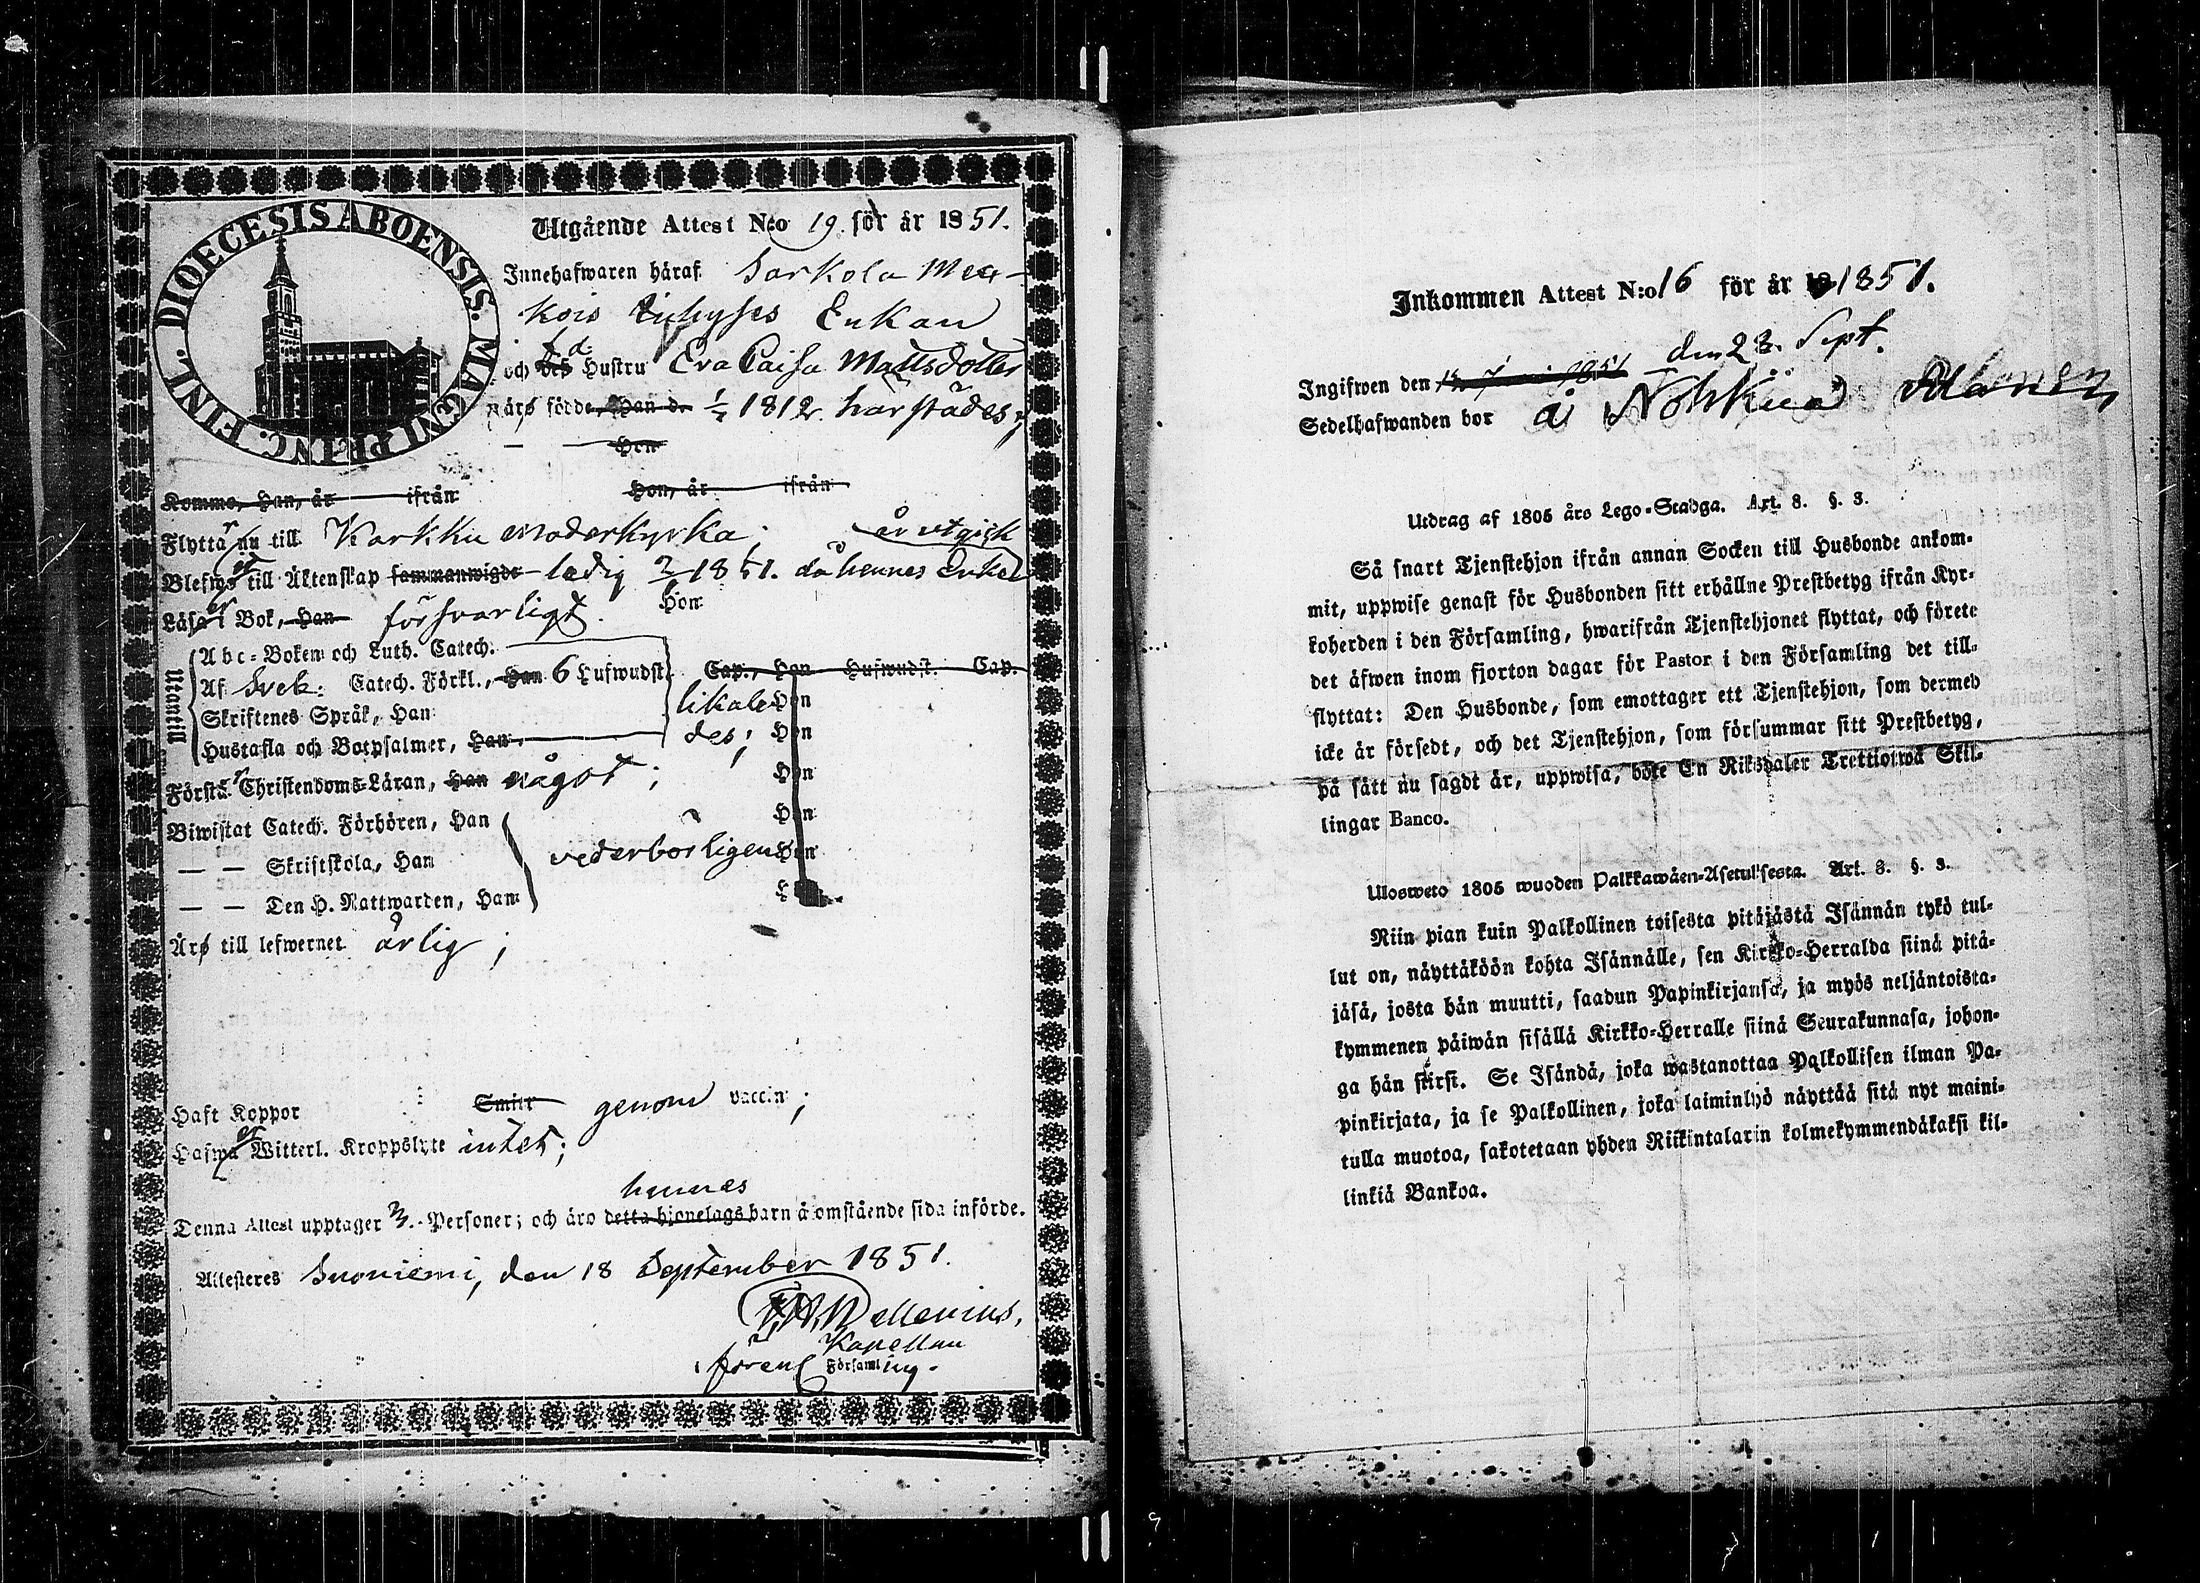 DIOECESIS ABOENSIS. MAGNI PRINC. FINL.
Utgående Attest N:o 19. för år 1851.
Innehafwaren häraf Sarkola Mar-
kois Enkan
och des Hustru Eva Caisa Mattsdotter
äro födde, Han d. 1812. härstädes,
— Hon
Komne, Han, år ifrån Hon, år ifrån
Flytta nu till Karkku moderkyrka; år utgick
Blefwo till Äktenskap sammanwigde ledig 1851. då hennes Enke
Läsa i Bok, Han försvarligt. Hon
Utantill
Abc-Boken och Luth. Catech.
Af Sveb: Catech. Förkl., Han 6 Hufwudst. Cap., Hon Hufwudst. Cap.
Skriftenes Språk, Han likale Hon
Hustafla och Botpsalmer, Han, des; Hon
Förstå Christendoms-Läran, Han något; Hon
Biwistat Catech. Förhören, Han Hon
— — Skriftskola, Han vederbörligen Hon
— — Den H. Nattwarden, Han
Äro till lefwernet ärlig;
Haft Koppor Smitt genom vaccin;
Hafwa Witterl. Kroppslyte intet;
hennes
Denna Attest upptager Personer; och äro detta hjonelags barn å omstående sida införde.
Attesteres Suoniemi, den 18 September 1851.
Mellenius,
Kapellan
i fören: Församling.
Inkommen Attest N:o 16 för år 1851.
den 23. Sept.
Ingifwen den 1851
Sedelhafwanden bor å Nohkua
Utdrag af 1805 års Lego-Stadga. Art. 8. §. 3.
Så snart Tjenstehjon ifrån annan Socken till Husbonde ankom-
mit, uppwise genast för Husbonden sitt erhållne Prestbetyg ifrån Kyr-
koherden i den Församling, hwarifrån Tjenstehjonet flyttat, och förete
det äfwen inom fjorton dagar för Pastor i den Församling det till-
flyttat: Den Husbonde, som emottager ett Tjenstehjon, som dermed
icke är försedt, och det Tjenstehjon, som försummar sitt Prestbetyg,
på sätt nu sagdt är, uppwisa, böte En Riksdaler Trettiotwå Skil-
lingar Banco.
Ulosweto 1805 wuoden Palkkawäen-Asetuksesta. Art. 8. §. 3.
Niin pian kuin Palkollinen toisesta pitäjästä Isännän tykö tul-
lut on, näyttäköön kohta Isännälle, sen Kirkko-Herralda siinä pitä-
jäsä, josta hän muutti, saadun Papinkirjansa, ja myös neljäntoista-
kymmenen päiwän sisällä Kirkko-Herralle siinä Seurakunnasa, johon-
ga hän siirsi. Se Isändä, joka wastanottaa Palkollisen ilman Pa-
pinkirjata, ja se Palkollinen, joka laiminlyö näyttää sitä nyt maini-
tulla muotoa, sakotetaan yhden Riikintalarin kolmekymmendäkaksi kil-
linkiä Bankoa.